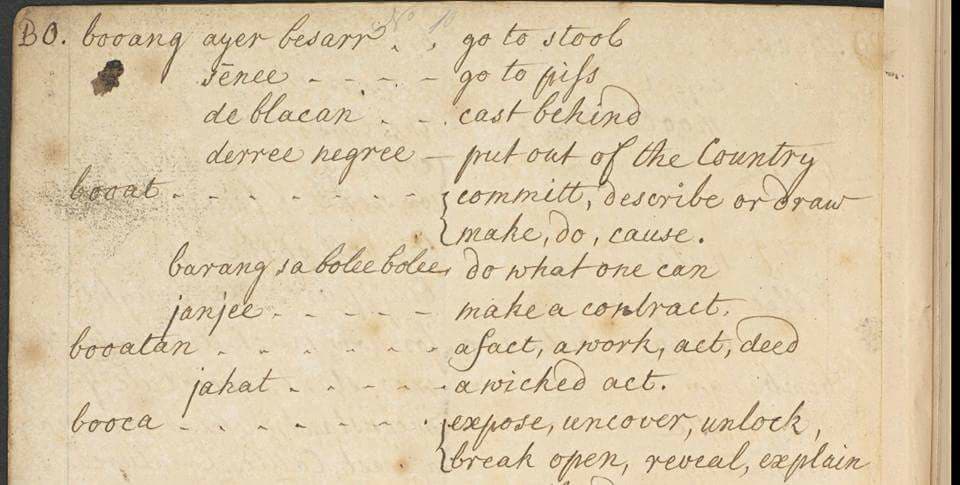 BO. booang ayer besarr . . go to stool
senee - - - - go to piss
de blacan . - . cast behind
derree negree - put out of the Country
booat . - - - - - - { committ, describe or draw
{ make, do, cause.
barang sa bolee bolee, do what one can
janjee - - - - - make a contract.
booatan . - - - - - a fact, a work, act, deed
jahat - - - - - a wicked act.
booca - - - - - - . { expose, uncover, unlock,
{ break open, reveal, explain